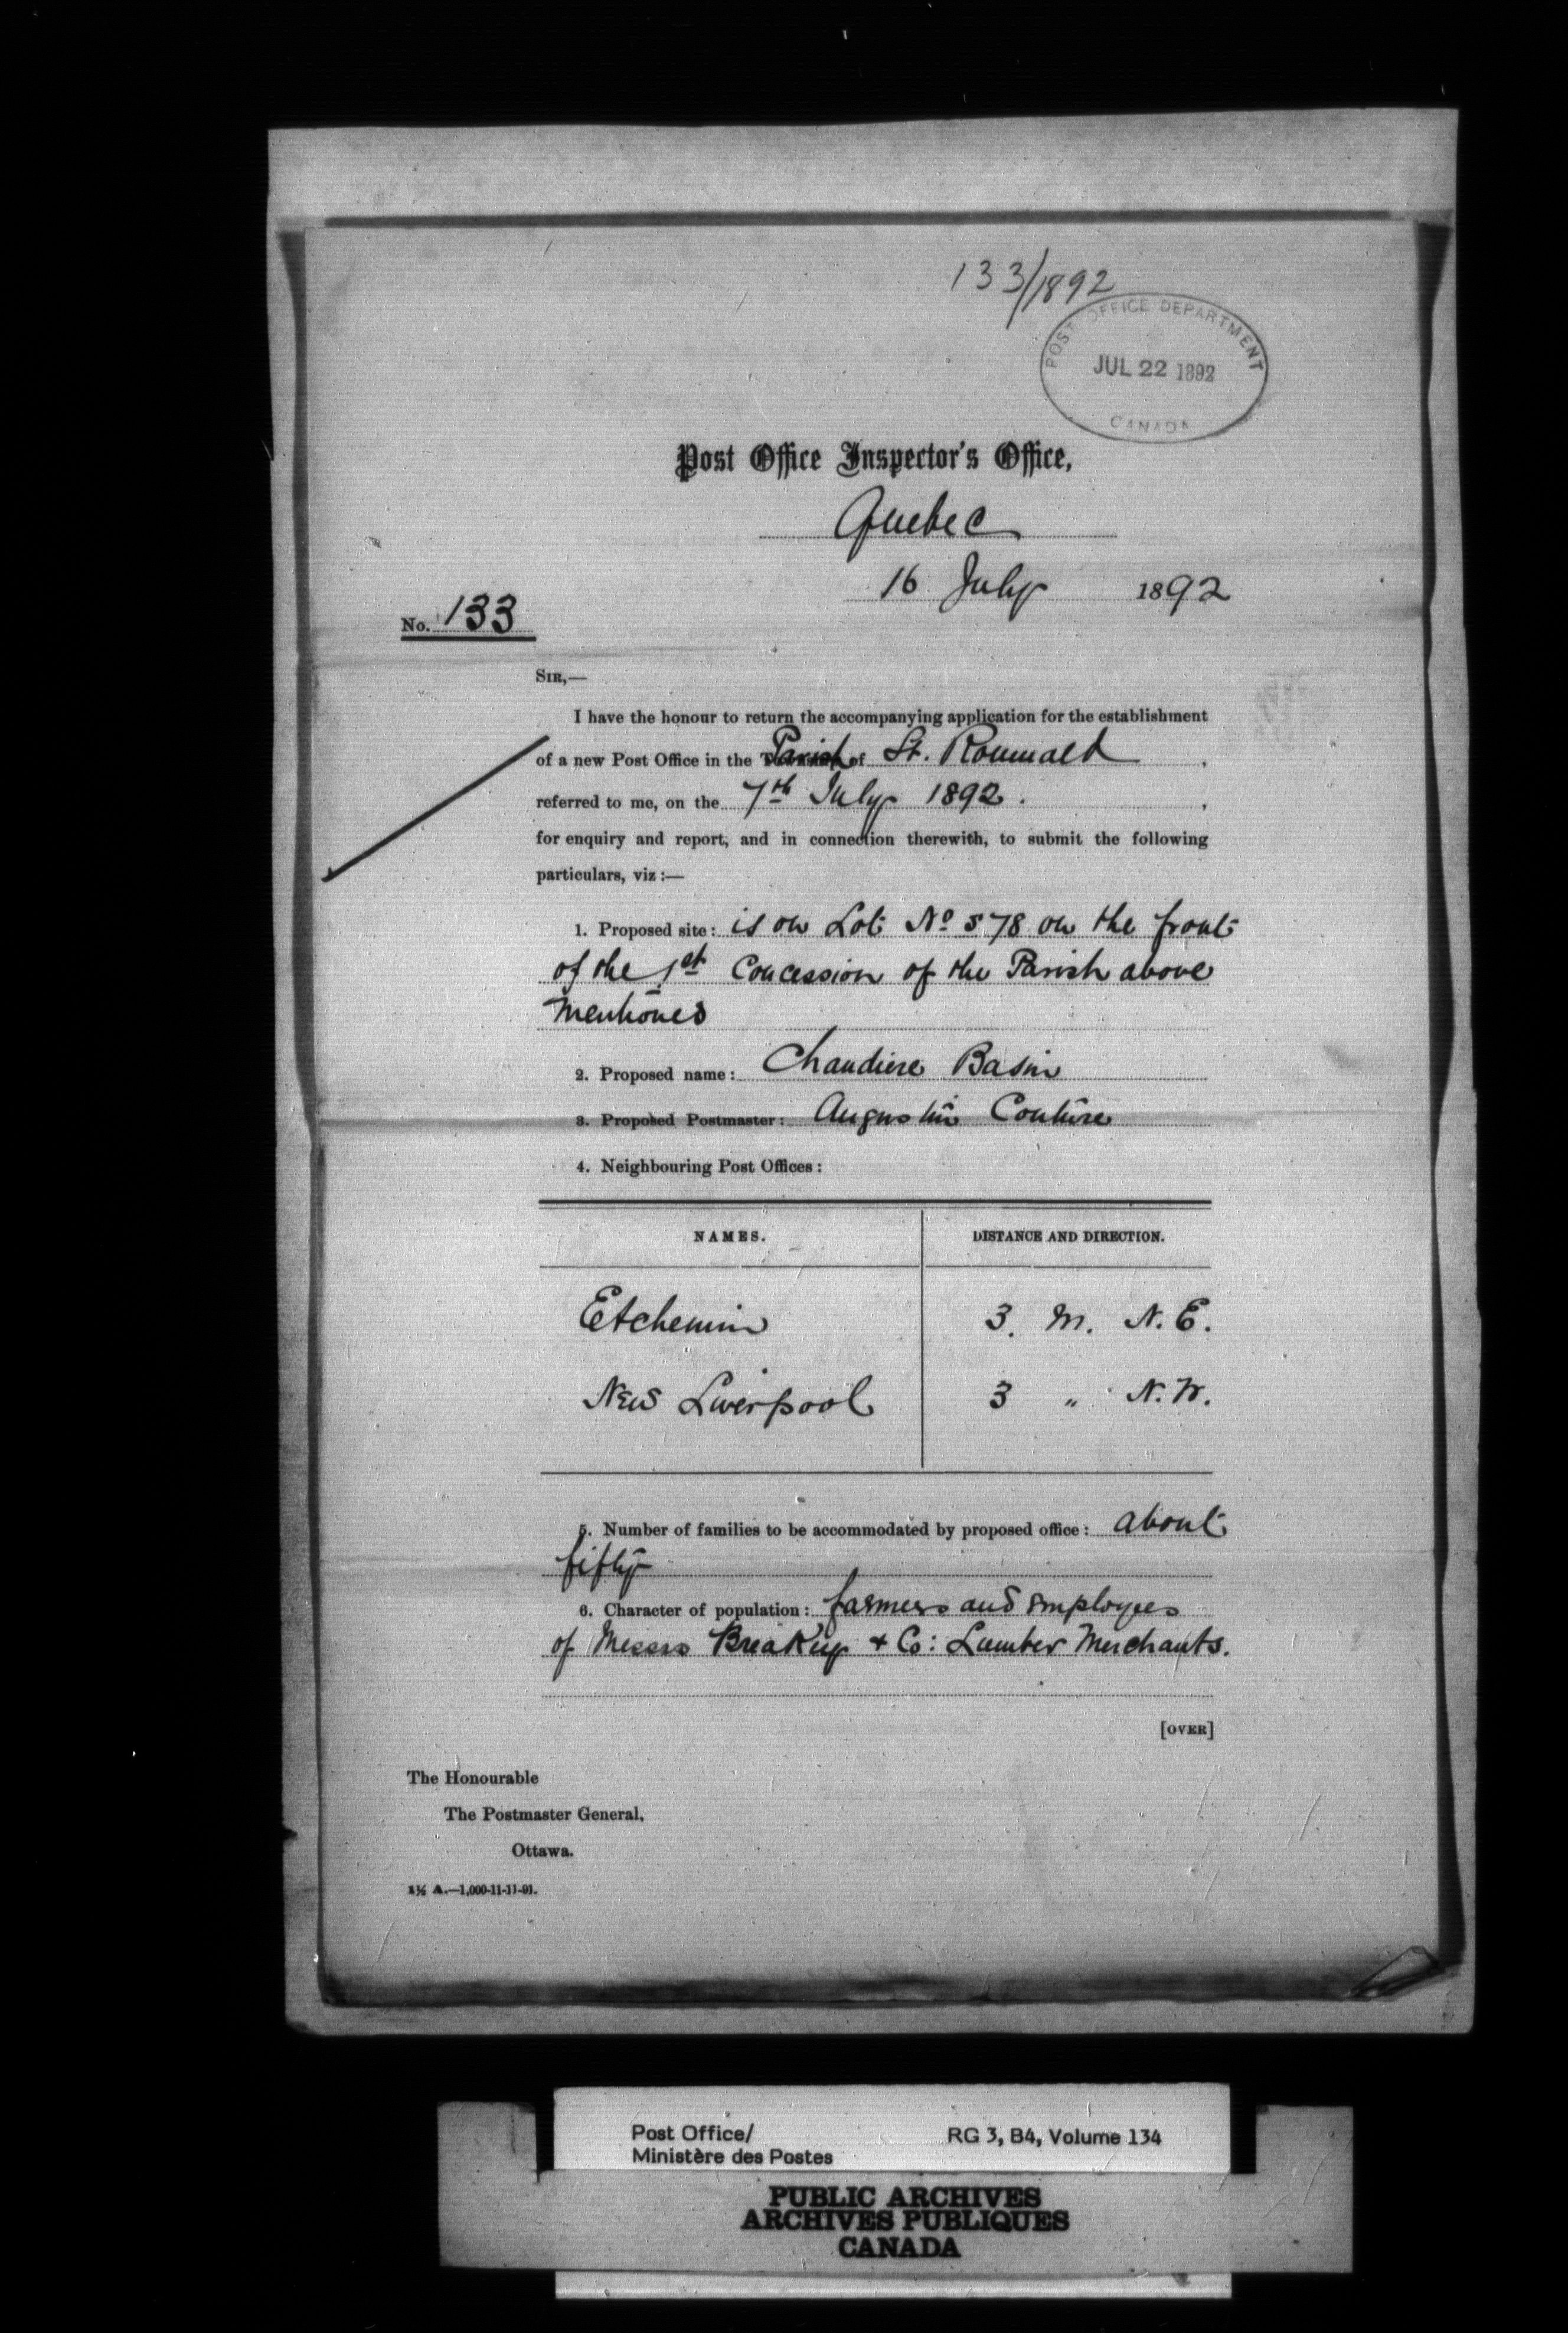 133/1892
POST OFFICE DEPARTMENT
JUL 22 1892
CANADA
Post Office Inspector's Office,
Quebec
16 July 1892
No. 133
SIR,—
I have the honour to return the accompanying application for the establishment
of a new Post Office in the Parish of St. Romuald,
referred to me, on the 7th July 1892.,
for enquiry and report, and in connection therewith, to submit the following
particulars, viz:—
1. Proposed site: is on Lot No 578 on the front
of the 1st Concession of the Parish above
mentioned
2. Proposed name: Chaudiere Basin
3. Proposed Postmaster: Augustin Couture
4. Neighbouring Post Offices:
NAMES. DISTANCE AND DIRECTION.
Etchemin 3. M. N. E.
New Liverpool 3 " N. W.
5. Number of families to be accommodated by proposed office: about
fifty
6. Character of population: farmers and employees
of Messrs Breakey & Co: Lumber Merchants.
[OVER]
The Honourable
The Postmaster General,
Ottawa.
1½ A.—1,000-11-11-91.
Post Office/ RG 3, B4, Volume 134
Ministère des Postes
PUBLIC ARCHIVES
ARCHIVES PUBLIQUES
CANADA